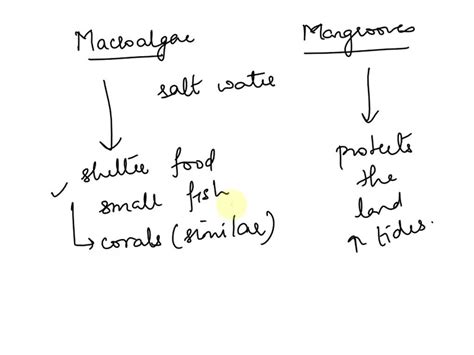 Macroalgae
Mangrooves
salt water
✓ shelter food
small fish
↳ corals (similar)
protects
the
land
↑ tides.